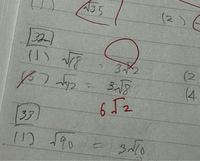 (1) √35 (2)
32
(1) √18 = 3√2 (2
) √72 = 3√8 (4
6√2
33
(1) √90 = 3√10